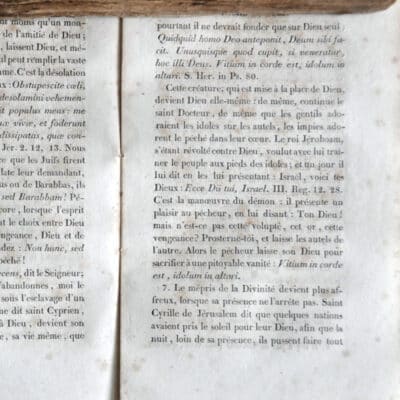 ni moins qu'un mon-
de l'amitié de Dieu ;
, laissent Dieu, et mé-
l peut remplir la vaste
ame. C'est la désolation
ux : Obstupescite cœli,
desolamini vehemen-
it populus meus: me
uæ vivæ, et foderunt
dissipatas, quæ con-
Jer. 2. 12, 13. Nous
ce que les Juifs firent
late leur demandant,
us ou de Barabbas, ils
sed Barabbam ! Pé-
core, lorsque l'esprit
nt le choix entre Dieu
engeance , Dieu et de
dez : Non hunc, sed
péché !
ycens, dit le Seigneur;
'abandonnes, moi le
sous l'esclavage d'un
me dit saint Cyprien,
à Dieu , devient son
, sa vie même , que
pourtant il ne devrait fonder que sur Dieu seul :
Quidquid homo Deo anteponit, Deum sibi fa-
cit. Unusquisque quod cupit, si veneratur,
hoc illi Deus. Vitium in corde est, idolum in
altari. S. Her. in Ps. 80.
Cette créature, qui est mise à la place de Dieu,
devient Dieu elle-même : de même, continue le
saint Docteur, de même que les gentils ado-
raient les idoles sur les autels, les impies ado-
rent le péché dans leur cœur. Le roi Jéroboam,
s'étant révolté contre Dieu, voulut avec lui traî-
ner le peuple aux pieds des idoles ; et un jour il
lui dit en les lui présentant : Israel, voici tes
Dieux : Ecce Dii tui, Israel. III. Reg. 12, 28.
C'est la manœuvre du démon : il présente un
plaisir au pécheur, en lui disant : Ton Dieu !
mais n'est-ce pas cette volupté, cet or, cette
vengeance? Prosterne-toi, et laisse les autels de
l'autre. Alors le pécheur laisse son Dieu pour
sacrifier à une pitoyable vanité : Vitium in corde
est, idolum in altari.
7. Le mépris de la Divinité devient plus af-
freux, lorsque sa présence ne l'arrête pas. Saint
Cyrille de Jérusalem dit que quelques nations
avaient pris le soleil pour leur Dieu, afin que la
nuit, loin de sa présence, ils pussent faire tout